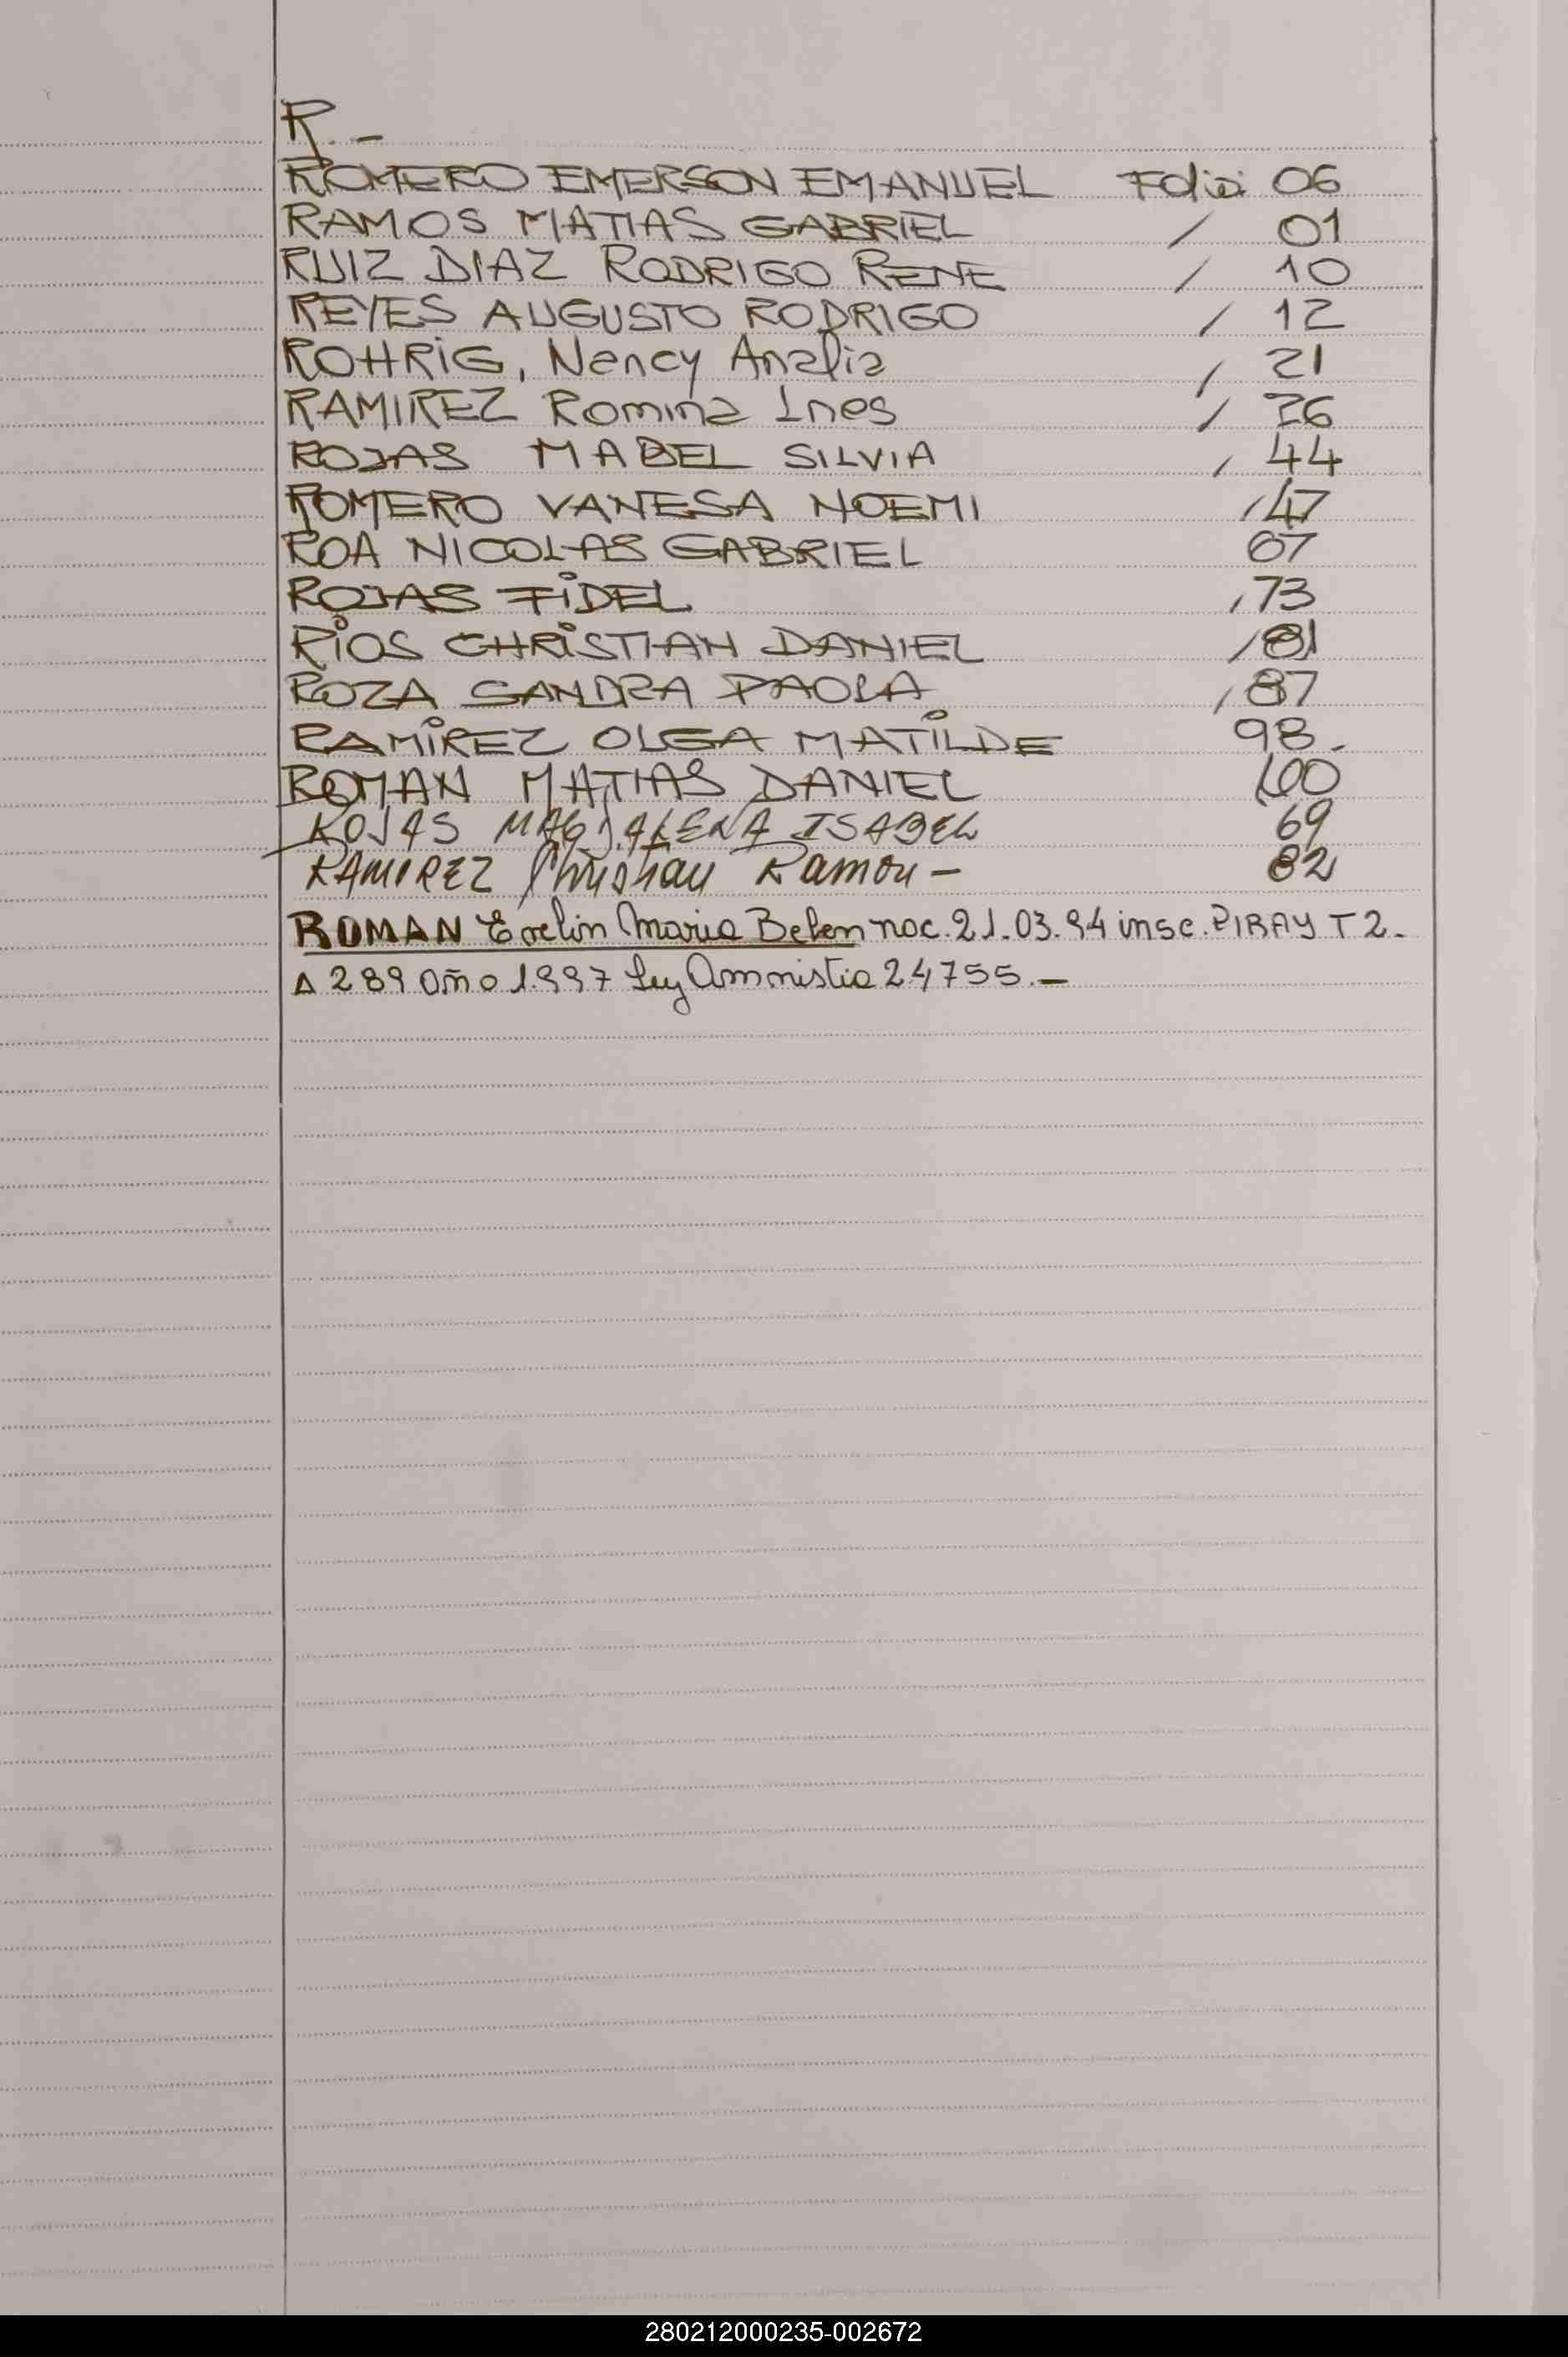 R.-
ROMERO EMERSON EMANUEL Folio 06
RAMOS MATIAS GABRIEL / 01
RUIZ DIAZ RODRIGO RENE / 10
REYES AUGUSTO RODRIGO / 12
ROHRIG, Nancy Analia / 21
RAMIREZ Romina Ines /
ROJAS MABEL SILVIA / 44
ROMERO VANESA NOEMI / 47
ROA NICOLAS GABRIEL 67
ROJAS FIDEL / 73
RIOS CHRISTIAN DANIEL / 81
ROZA SANDRA PAOLA / 87
RAMIREZ OLGA MATILDE 98.
ROMAN MATIAS DANIEL 100
ROJAS MAGDALENA ISABEL 69
RAMIREZ Christian Ramon - 82
ROMAN Evelin Maria Belen nac. 21.03.94 insc. PIRAY T 2.
A 289 año 1.997 Ley Amnistia 24755.-
280212000235-002672